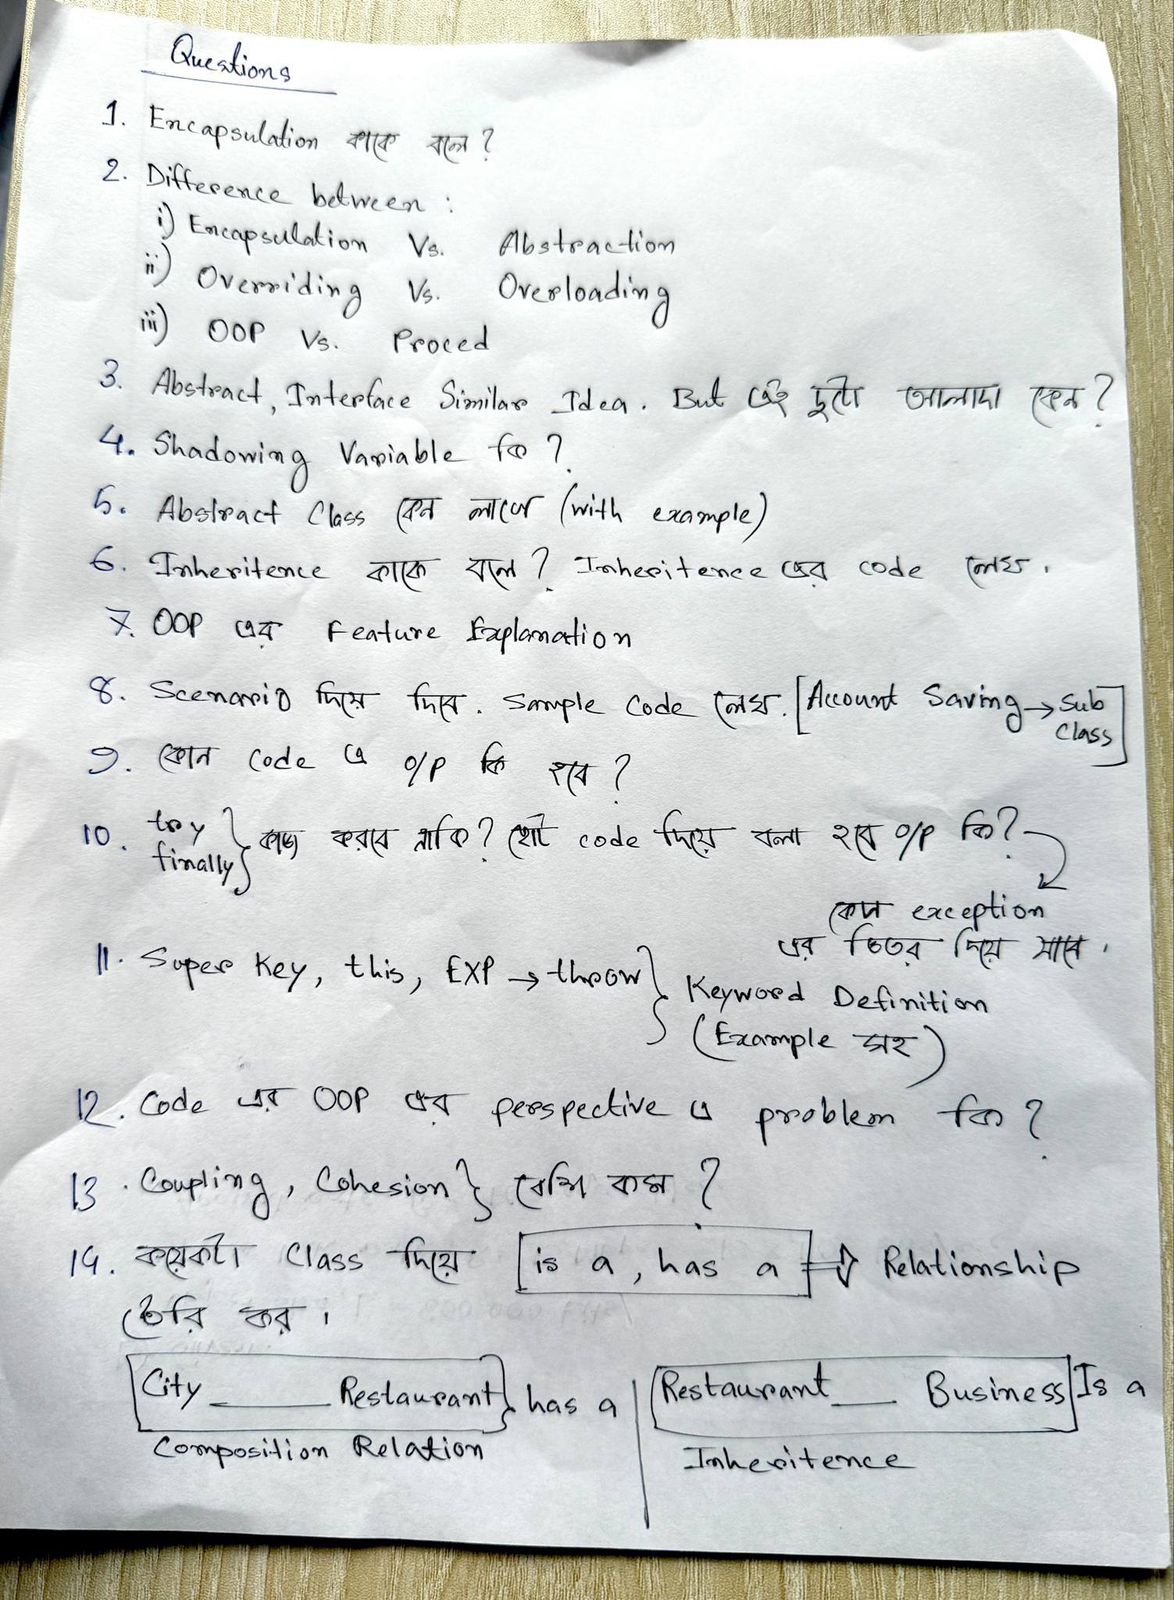 Questions
1. Encapsulation কাকে বলে?
2. Difference between :
i) Encapsulation Vs. Abstraction
ii) Overriding Vs. Overloading
iii) OOP Vs. Proced
3. Abstract, Interface Similar Idea. But এই দুটো আলাদা কেন?
4. Shadowing Variable কি?
5. Abstract Class কেন লাগে (with example)
6. Inheritence কাকে বলে? Inheritence এর code লেখ.
7. OOP এর Feature Explanation
8. Scenario দিয়ে দিবে. Sample Code লেখ. [Account Saving → Sub Class]
9. কোন Code এ O/P কি হবে?
10. try finally } কাজ করবে নাকি? ছোট code দিয়ে বলা হবে O/P কি?
কোন exception
এর ভিতর দিয়ে যাবে.
11. Super Key, this, EXP → throw } Keyword Definition
(Example সহ)
12. Code এর OOP এর perspective এ problem কি?
13. Coupling, Cohesion } বেশি কম?
14. কয়েকটা Class দিয়ে [is a, has a] ⇒ Relationship
তৈরি কর।
[City ____ Restaurant] has a | [Restaurant __ Business] Is a
Composition Relation | Inheritence